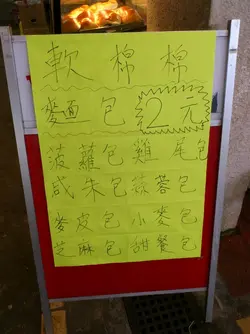 軟棉棉
麵包2元
菠蘿包雞尾包
咸朱包蒜蓉包
麥皮包小麥包
芝麻包甜餐包